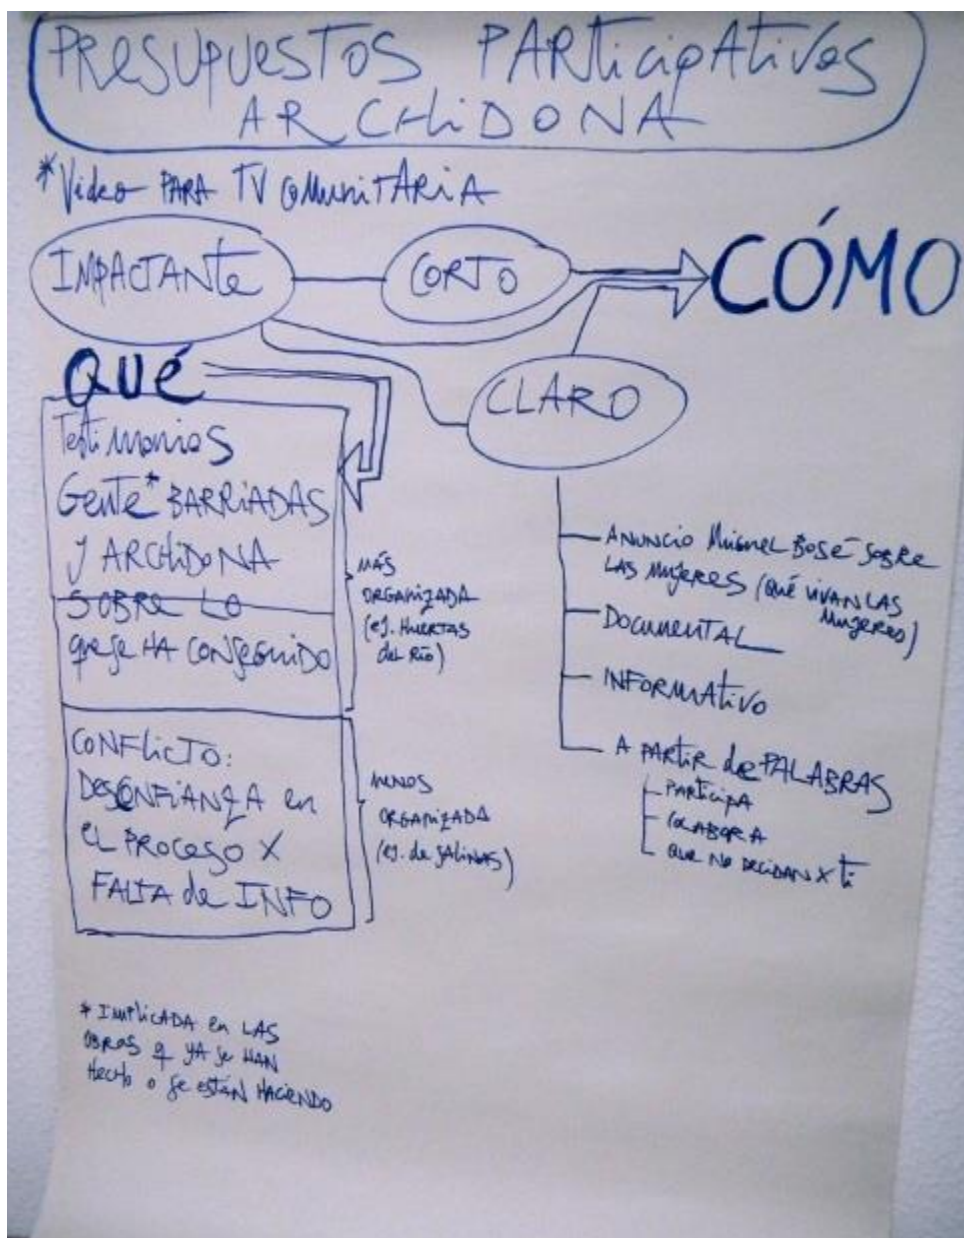 PRESUPUESTOS PARTICIPATIVOS
ARCHIDONA
* Video PARA TV COMUNITARIA
IMPACTANTE
CORTO
CÓMO
CLARO
QUÉ
Testimonios
Gente* BARRIADAS
y ARCHIDONA
SOBRE LO
que se HA CONSEGUIDO
MÁS
ORGANIZADA
(ej. HUERTAS
del Río)
CONFLICTO:
DESCONFIANZA en
EL PROCESO X
FALTA de INFO
MENOS
ORGANIZADA
(ej. de SALINAS)
ANUNCIO Miguel BOSÉ SOBRE
LAS MUJERES (QUÉ VIVAN LAS
MUJERES)
DOCUMENTAL
INFORMATIVO
A PARTIR de PALABRAS
PARTICIPA
COLABORA
QUE NO DECIDAN X ti
* IMPLICADA en LAS
OBRAS q YA se HAN
Hecho o se están HACIENDO